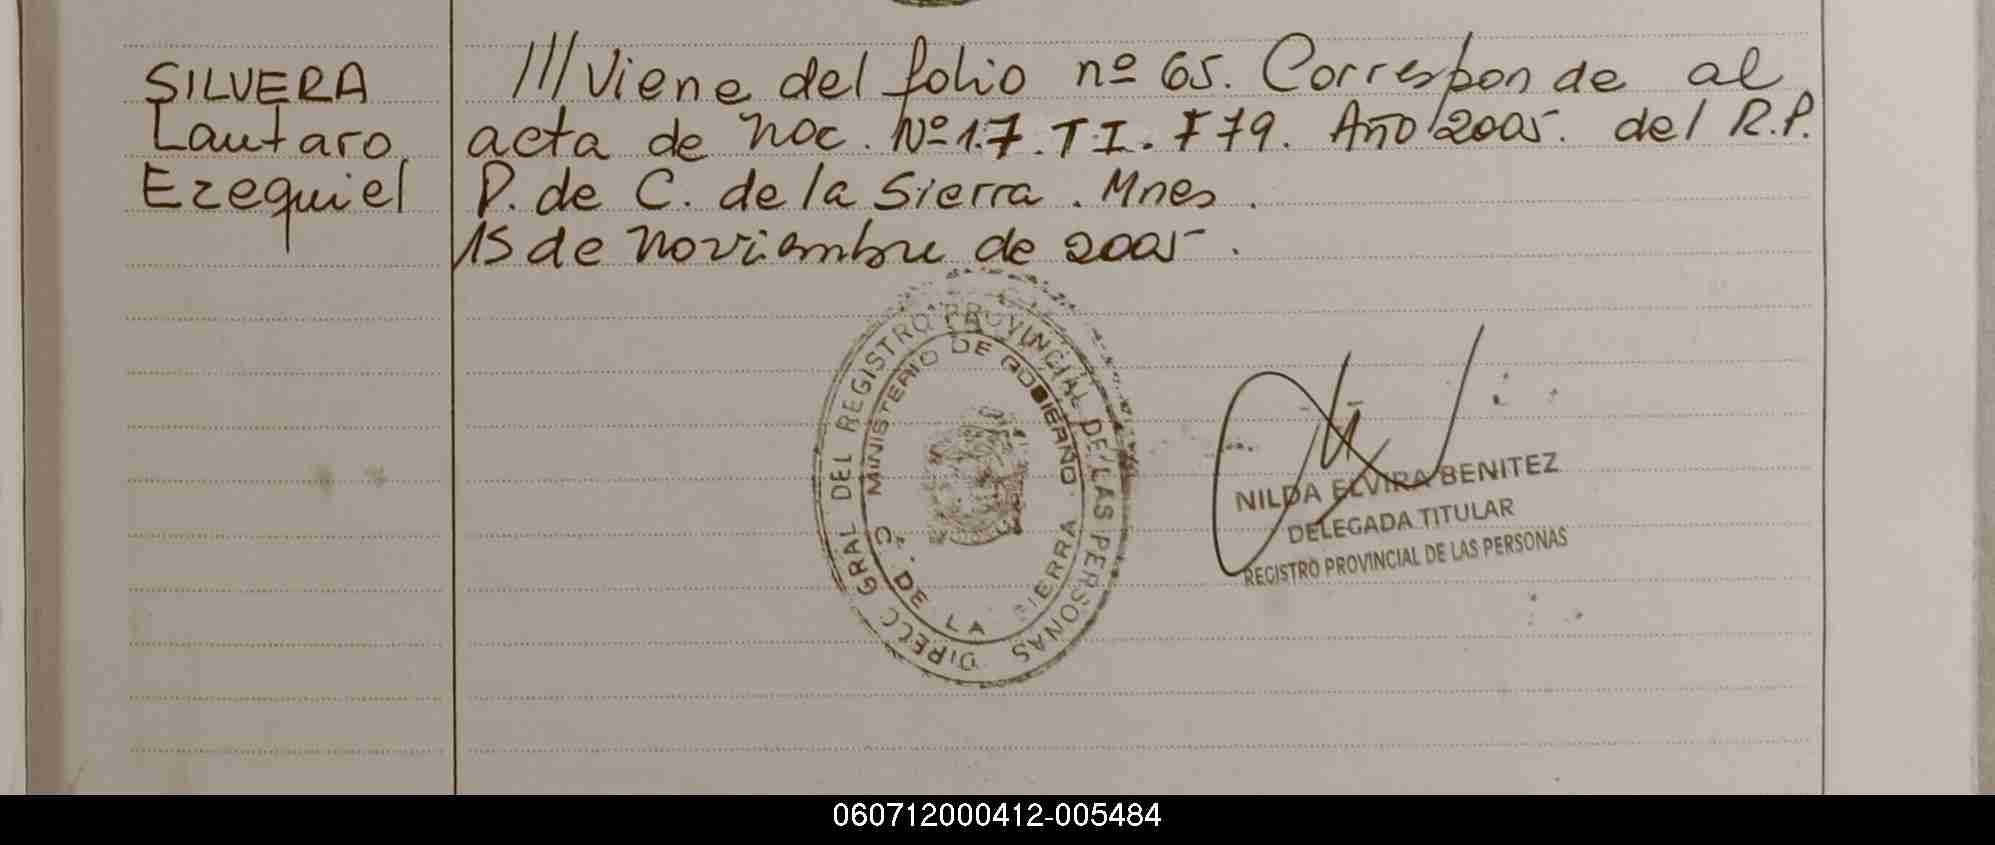 SILVERA
Lautaro
Ezequiel
/// Viene del folio nº 65. Corresponde al
acta de Noc. Nº 17. T I. F 79. Año 2005. del R.P.
P. de C. de la Sierra. Mnes.
15 de noviembre de 2005.
DIRECC GRAL DEL REGISTRO PROVINCIAL DE LAS PERSONAS
MINISTERIO DE GOBIERNO
Cª. DE LA SIERRA
NILDA ELVIRA BENITEZ
DELEGADA TITULAR
REGISTRO PROVINCIAL DE LAS PERSONAS
060712000412-005484